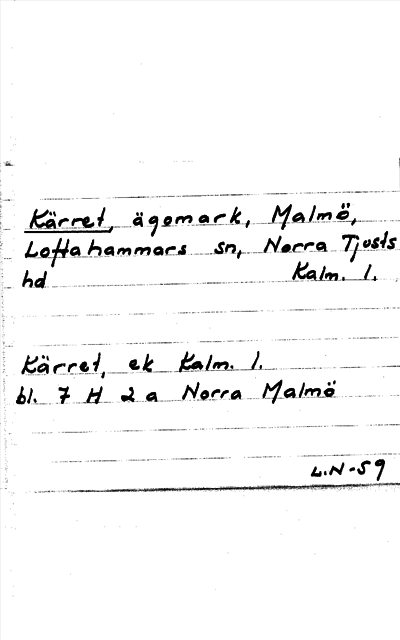 Kärret, ägomark, Malmö,
Loftahammars sn, Norra Tjusts
hd Kalm. l.
Kärret, ek Kalm. l.
bl. 7 H 2 a Norra Malmö
L.N-59